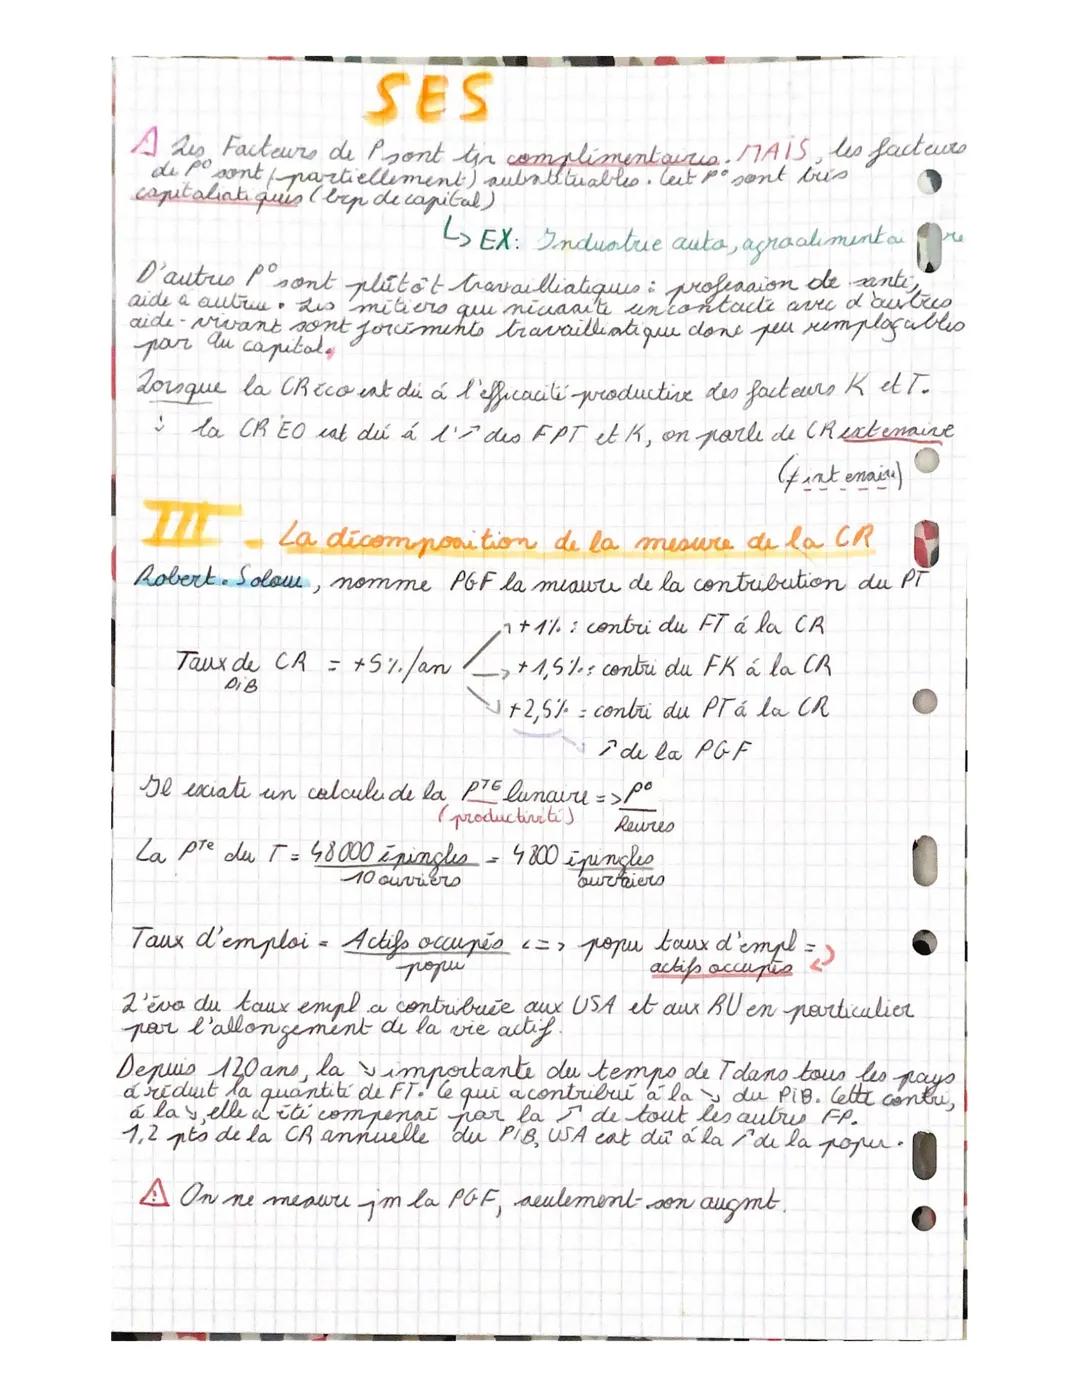 SES
⚠ Les Facteurs de P° sont tjr complémentaires. MAIS, les facteurs
de P° sont (partiellement) substituables. Cert P° sont très
capitalistiques (bcp de capital)
↳ EX: Industrie auto, agroalimentaire
D'autres P° sont plutôt travaillistiques : profession de santé,
aide à autrui. Les métiers qui nécessite un contacte avec d'autres
aide-vivant sont forcéments travaillistique donc peu remplaçables
par du capital.
Lorsque la CR éco est dû à l'efficacité productive des facteurs K et T.
: la CR EO est dû à l'↗ des FPT et K, on parle de CR extensive
(≠ intensive)
III - La décomposition de la mesure de la CR
Robert. Solow, nomme PGF la mesure de la contribution du PT
+1% : contri du FT à la CR
Taux de CR = +5%/an → +1,5% : contri du FK à la CR
PiB
+2,5% = contri du PT à la CR
↗ de la PGF
Il existe un calcule de la PTE lunaire => P°
(productivité) heures
La PTe du T = 48000 épingles = 4800 épingles
10 ouvriers ouvriers
Taux d'emploi = Actifs occupés <=> popu taux d'empl =
popu actifs occupés
L'évo du taux empl a contribuée aux USA et aux RU en particulier
par l'allongement de la vie actif.
Depuis 120 ans, la ↘ importante du temps de T dans tous les pays
a réduit la quantité de FT. Ce qui a contribué à la ↘ du PiB. Cette contri,
à la ↘, elle a été compensé par la ↗ de tout les autres FP.
1,2 pts de la CR annuelle du PiB, USA est dû à la ↗ de la popu.
⚠ On ne mesure jm la PGF, seulement son augmt.